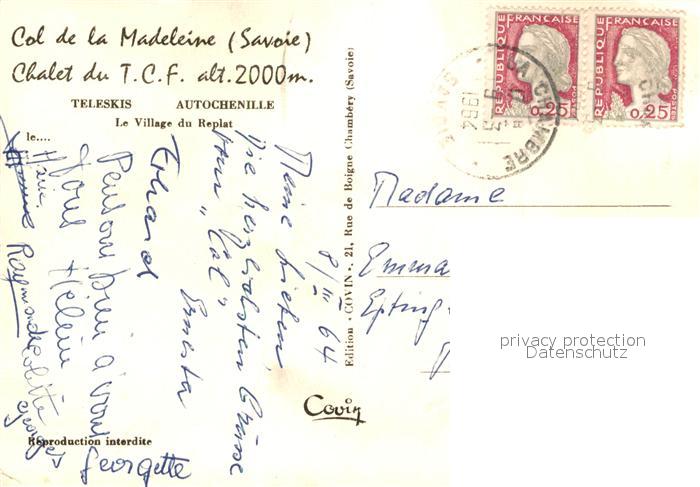 Col de la Madeleine (Savoie)
Chalet du T.C.F. alt. 2000m.
TELESKIS AUTOCHENILLE
Le Village du Replat
le.....
8/III 64
Meine Lieben,
Die herzlichsten Grüsse
vom "Col"
Ernesta
Erhard
Pensons bien à vous
tous Hélène
Georgette
Raymonde Colette
Georges
Reproduction interdite
Edition - COVIN -, 21, Rue de Boigne Chambéry (Savoie)
Covin
REPUBLIQUE FRANÇAISE
0,25
POSTES
REPUBLIQUE FRANÇAISE
0,25
POSTES
LA CHAMBRE
1964
SAVOIE
Madame
Emma
Epting
privacy protection
Datenschutz